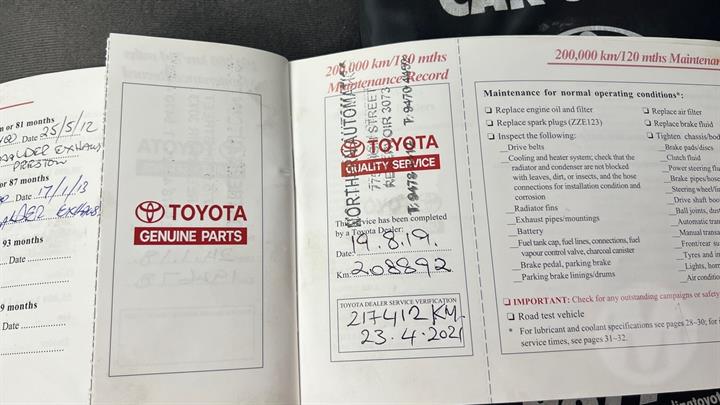 or 81 months
Date 25/5/12
PRESTON
or 87 months
Date 17/1/13
93 months
Date
9 months
Date
TOYOTA
GENUINE PARTS
200,000 km/120 mths
Maintenance Record
775 HIGH STREET
RESERVOIR 3073
TOYOTA
QUALITY SERVICE
This service has been completed
by a Toyota Dealer:
Date: 19.8.19.
Km: 208892
TOYOTA DEALER SERVICE VERIFICATION
217412 KM.
23.4.2021
200,000 km/120 mths Maintenan
Maintenance for normal operating conditions*:
Replace engine oil and filter
Replace spark plugs (ZZE123)
Inspect the following:
Drive belts
Cooling and heater system; check that the
radiator and condenser are not blocked
with leaves, dirt, or insects, and the hose
connections for installation condition and
corrosion
Radiator fins
Exhaust pipes/mountings
Battery
Fuel tank cap, fuel lines, connections, fuel
vapour control valve, charcoal canister
Brake pedal, parking brake
Parking brake linings/drums
Replace air filter
Replace brake fluid
Tighten chassis/bod
Brake pads/discs
Clutch fluid
Power steering flu
Brake pipes/hose
Steering wheel/lin
Drive shaft boo
Ball joints, dus
Automatic tran
Manual transa
Front/rear su
Tyres and in
Lights, horn
Air condition
IMPORTANT: Check for any outstanding campaigns or safety
Road test vehicle
* For lubricant and coolant specifications see pages 28–30; for
service times, see pages 31–32.